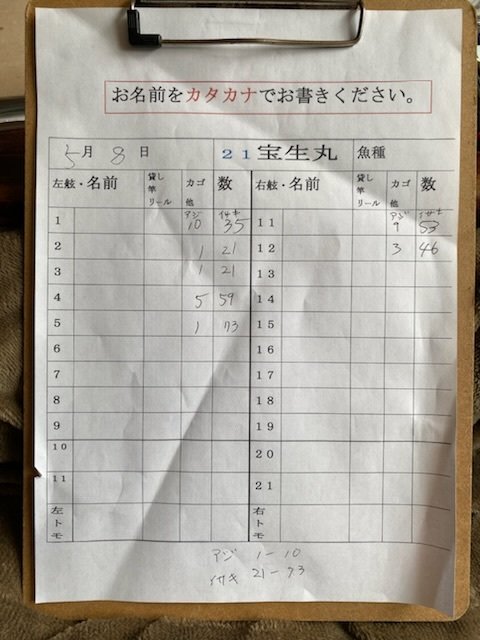 お名前をカタカナでお書きください。
5月 8日 21宝生丸 魚種
左舷・名前 貸し竿リール カゴ他 数 右舷・名前 貸し竿リール カゴ他 数
1 アジ 10 イサキ 35 11 アジ 9 イサキ 53
2 1 21 12 3 46
3 1 21 13
4 5 59 14
5 1 73 15
6 16
7 17
8 18
9 19
10 20
11 21
左トモ 右トモ
アジ 1-10
イサキ 21-73